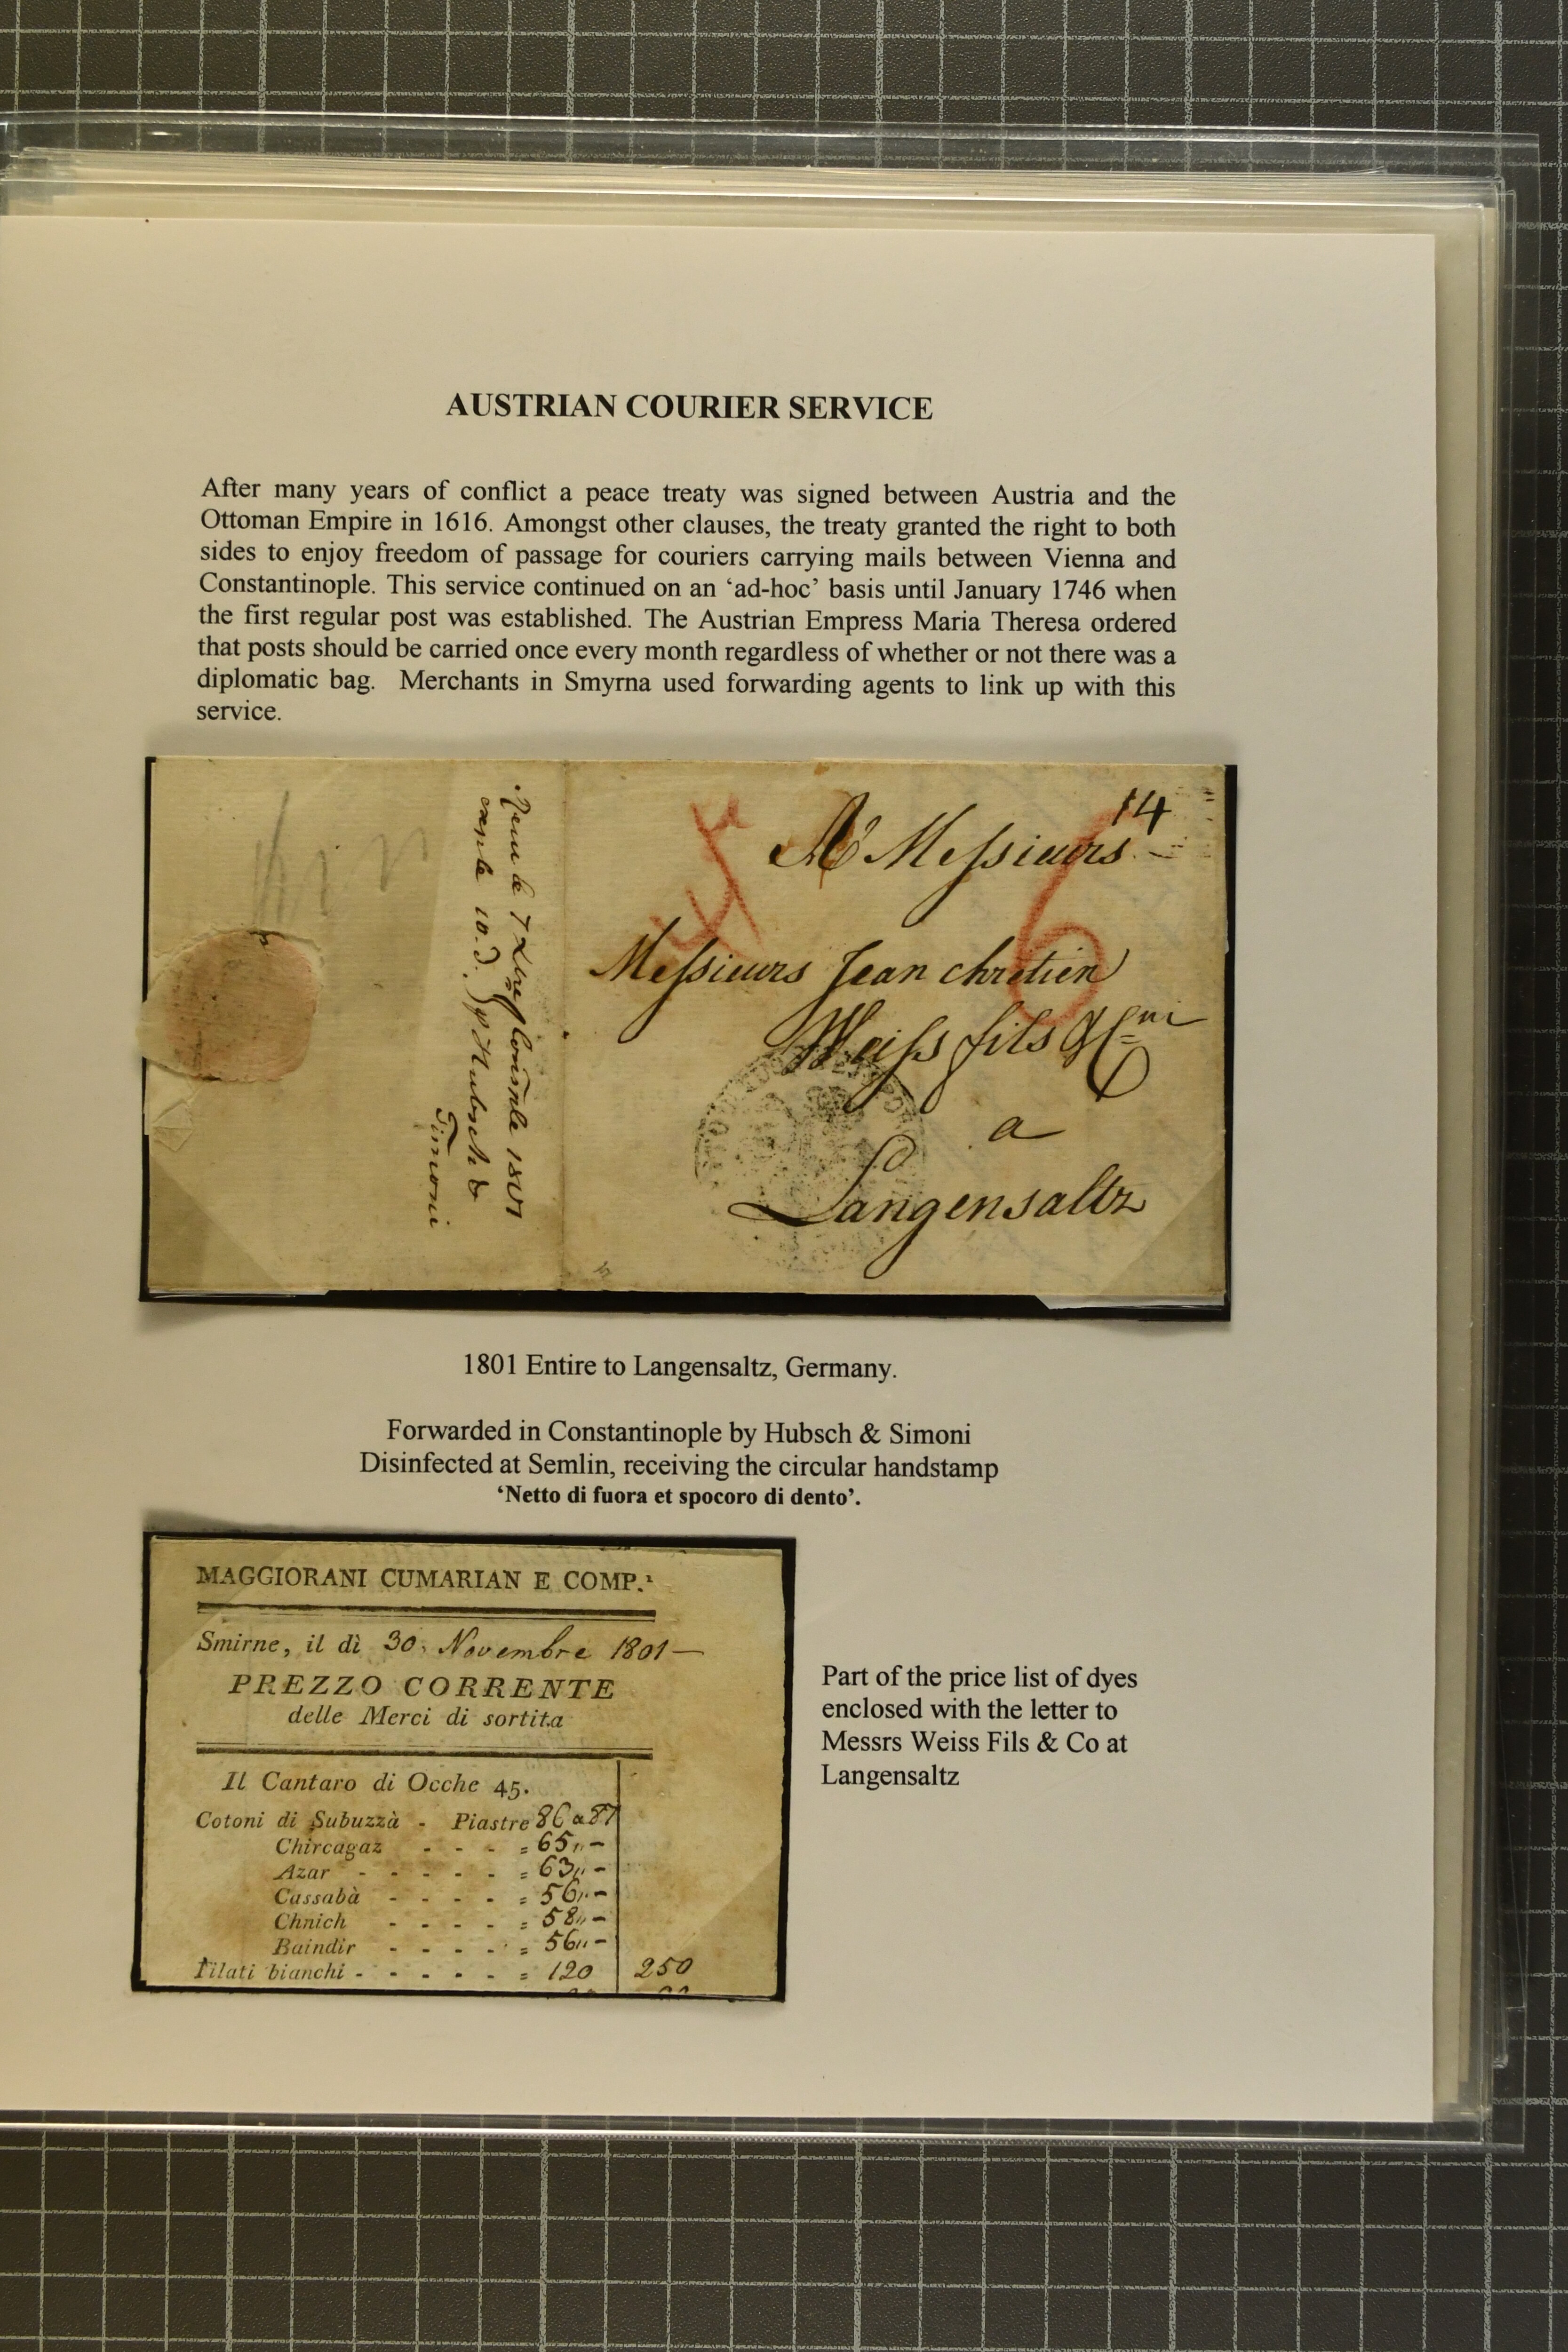 AUSTRIAN COURIER SERVICE
After many years of conflict a peace treaty was signed between Austria and the
Ottoman Empire in 1616. Amongst other clauses, the treaty granted the right to both
sides to enjoy freedom of passage for couriers carrying mails between Vienna and
Constantinople. This service continued on an ‘ad-hoc’ basis until January 1746 when
the first regular post was established. The Austrian Empress Maria Theresa ordered
that posts should be carried once every month regardless of whether or not there was a
diplomatic bag. Merchants in Smyrna used forwarding agents to link up with this
service.
14
A Messieurs
Messieurs Jean chretien
Weiss fils & Cnie
a
Langensaltz
6
1801
Hubsch &
Timoni
1801 Entire to Langensaltz, Germany.
Forwarded in Constantinople by Hubsch & Simoni
Disinfected at Semlin, receiving the circular handstamp
‘Netto di fuora et spocoro di dento’.
MAGGIORANI CUMARIAN E COMP.ⁱ
Smirne, il dì 30. Novembre 1801 —
PREZZO CORRENTE
delle Merci di sortita
Il Cantaro di Ocche 45.
Cotoni di Subuzzà - Piastre 86 a 87
Chircagaz - - - = 65,,-
Azar - - - - - = 63,,-
Cassabà - - - - = 56,,-
Chnich - - - - = 58,,-
Baindir - - - - = 56,,-
Filati bianchi - - - - - = 120 250
Part of the price list of dyes
enclosed with the letter to
Messrs Weiss Fils & Co at
Langensaltz